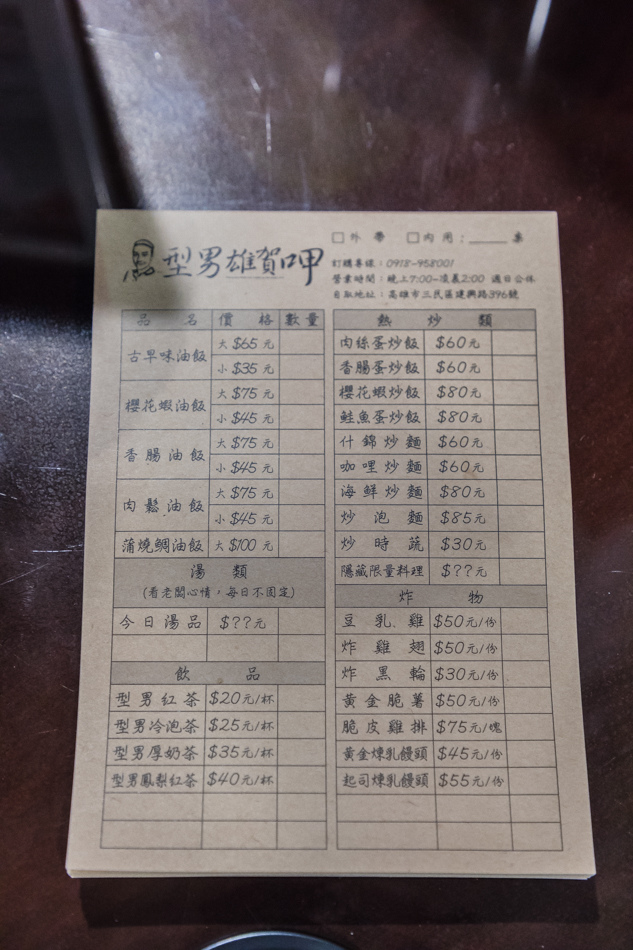 型男雄賀呷
□外帶 □內用:_____桌
訂購專線:0918-958001
營業時間:晚上7:00~凌晨2:00 週日公休
自取地址:高雄市三民區建興路396號
品名 價格 數量
古早味油飯 大 $65元
小 $35元
櫻花蝦油飯 大 $75元
小 $45元
香腸油飯 大 $75元
小 $45元
肉鬆油飯 大 $75元
小 $45元
蒲燒鯛油飯 大 $100元
湯類
(看老闆心情,每日不固定)
今日湯品 $??元
飲品
型男紅茶 $20元/杯
型男冷泡茶 $25元/杯
型男厚奶茶 $35元/杯
型男鳳梨紅茶 $40元/杯
熱炒類
肉絲蛋炒飯 $60元
香腸蛋炒飯 $60元
櫻花蝦炒飯 $80元
鮭魚蛋炒飯 $80元
什錦炒麵 $60元
咖哩炒麵 $60元
海鮮炒麵 $80元
炒泡麵 $85元
炒時蔬 $30元
隱藏限量料理 $??元
炸物
豆乳雞 $50元/份
炸雞翅 $50元/份
炸黑輪 $30元/份
黃金脆薯 $50元/份
脆皮雞排 $75元/塊
黃金煉乳饅頭 $45元/份
起司煉乳饅頭 $55元/份